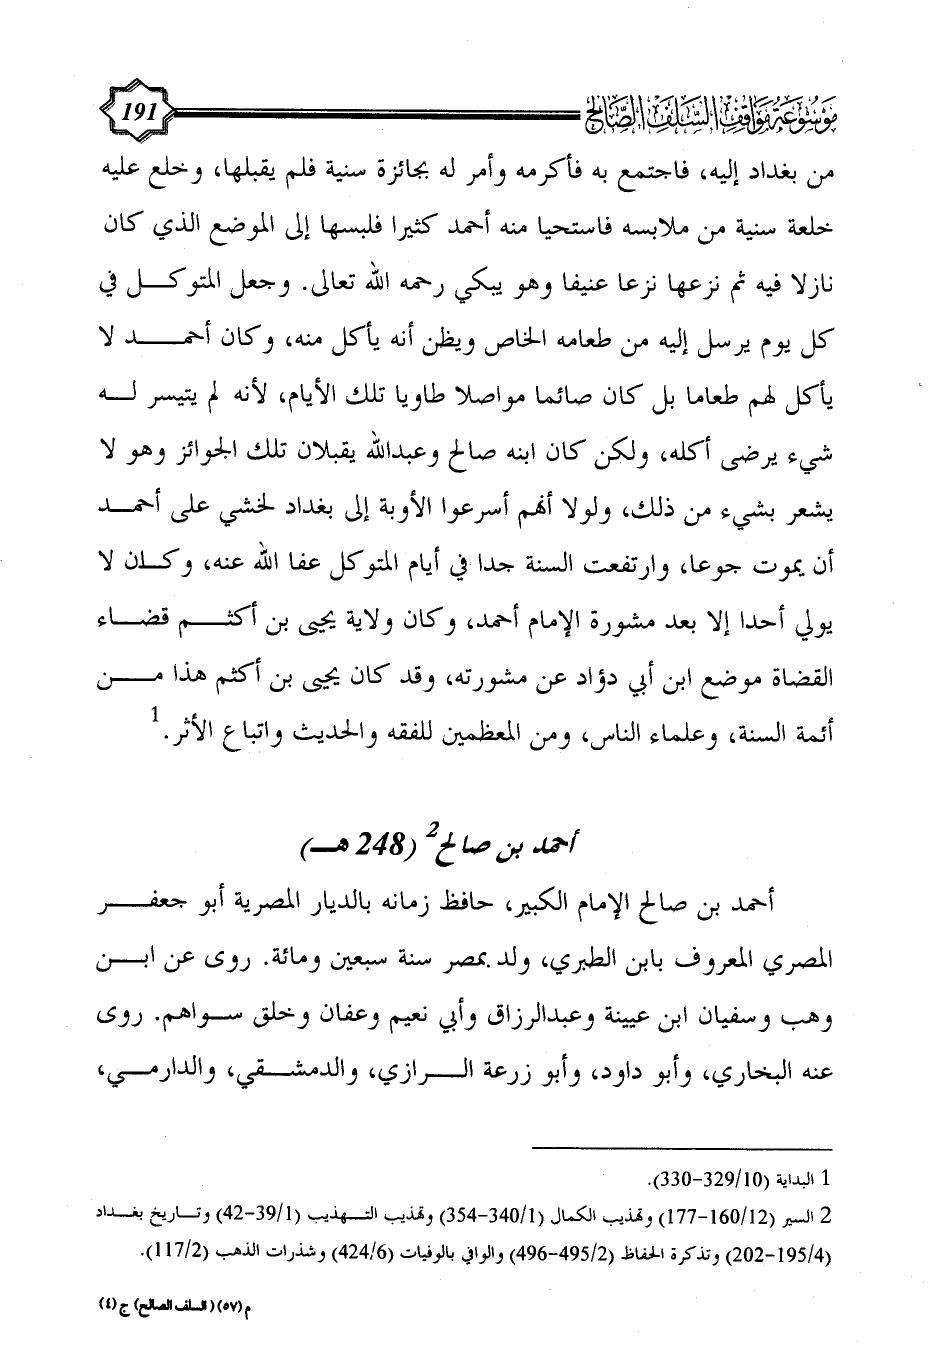 موسوعة مواقف السلف الصالح
191
من بغداد إليه، فاجتمع به فأكرمه وأمر له بجائزة سنية فلم يقبلها، وخلع عليه
خلعة سنية من ملابسه فاستحيا منه أحمد كثيرا فلبسها إلى الموضع الذي كان
نازلا فيه ثم نزعها نزعا عنيفا وهو يبكي رحمه الله تعالى. وجعل المتوكل في
كل يوم يرسل إليه من طعامه الخاص ويظن أنه يأكل منه، وكان أحمد لا
يأكل لهم طعاما بل كان صائما مواصلا طاويا تلك الأيام، لأنه لم يتيسر له
شيء يرضى أكله، ولكن كان ابنه صالح وعبدالله يقبلان تلك الجوائز وهو لا
يشعر بشيء من ذلك، ولولا أنهم أسرعوا الأوبة إلى بغداد لخشي على أحمد
أن يموت جوعا، وارتفعت السنة جدا في أيام المتوكل عفا الله عنه، وكان لا
يولي أحدا إلا بعد مشورة الإمام أحمد، وكان ولاية يحيى بن أكثم قضاء
القضاة موضع ابن أبي دؤاد عن مشورته، وقد كان يحيى بن أكثم هذا من
أئمة السنة، وعلماء الناس، ومن المعظمين للفقه والحديث واتباع الأثر.1
أحمد بن صالح2 (248 هـ)
أحمد بن صالح الإمام الكبير، حافظ زمانه بالديار المصرية أبو جعفر
المصري المعروف بابن الطبري، ولد بمصر سنة سبعين ومائة. روى عن ابن
وهب وسفيان ابن عيينة وعبدالرزاق وأبي نعيم وعفان وخلق سواهم. روى
عنه البخاري، وأبو داود، وأبو زرعة الرازي، والدمشقي، والدارمي،
1 البداية (10/329-330).
2 السير (12/160-177) وتهذيب الكمال (1/340-354) وتهذيب التهذيب (1/39-42) وتاريخ بغداد
(4/195-202) وتذكرة الحفاظ (2/495-496) والوافي بالوفيات (6/424) وشذرات الذهب (2/117).
م (٥٧) (السلف الصالح) ج (٤)